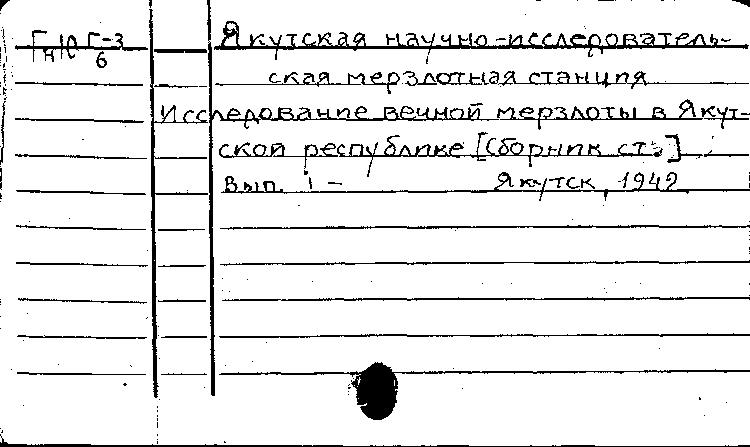 Якутская научно-исследователь-
ская мерзлотная станция
Исследование вечной мерзлоты в Якут-
ской республике [Сборник ст.]
Вып. 1 – Якутск, 1942